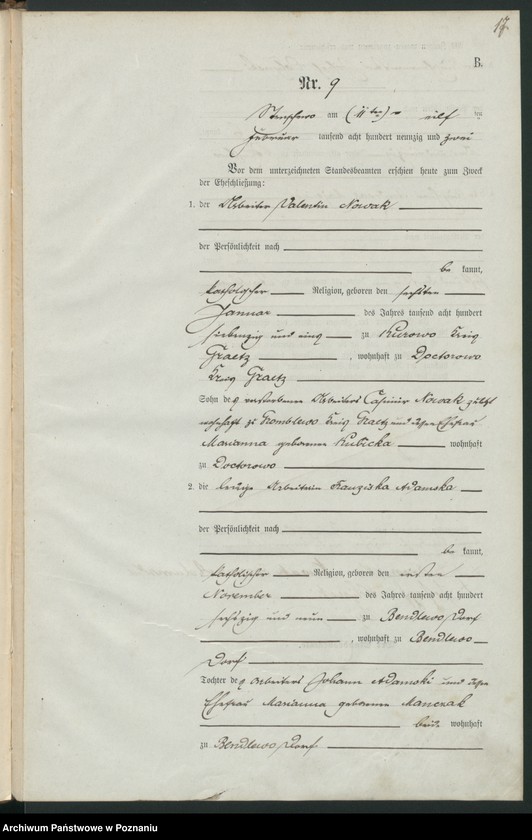 17
B.
Nr. 9
am (11ten) eilf ten
Februar tausend acht hundert neunzig und zwei
Vor dem unterzeichneten Standesbeamten erschien heute zum Zweck
der Eheschließung:
1. der Arbeiter Valentin Nowak
der Persönlichkeit nach
be kannt,
katholischer Religion, geboren den sechsten
Januar des Jahres tausend acht hundert
siebenzig und eins zu Kurowo Kreis
Graetz, wohnhaft zu Doctorowo
Kreis Graetz
Sohn des verstorbenen Arbeiters Casimir Nowak zuletzt
wohnhaft zu Kreis Graetz und dessen Ehefrau
Marianna geborene Kubicka wohnhaft
zu Doctorowo
2. die ledige Arbeiterin Franziska Adamska
der Persönlichkeit nach
be kannt,
katholischer Religion, geboren den ersten
November des Jahres tausend acht hundert
sechszig und neun zu Bendlewo Dorf
, wohnhaft zu Bendlewo
Dorf
Tochter des Arbeiters Johann Adamski und dessen
Ehefrau Marianna geborene Manczak
beide wohnhaft
zu Bendlewo Dorf
Archiwum Państwowe w Poznaniu